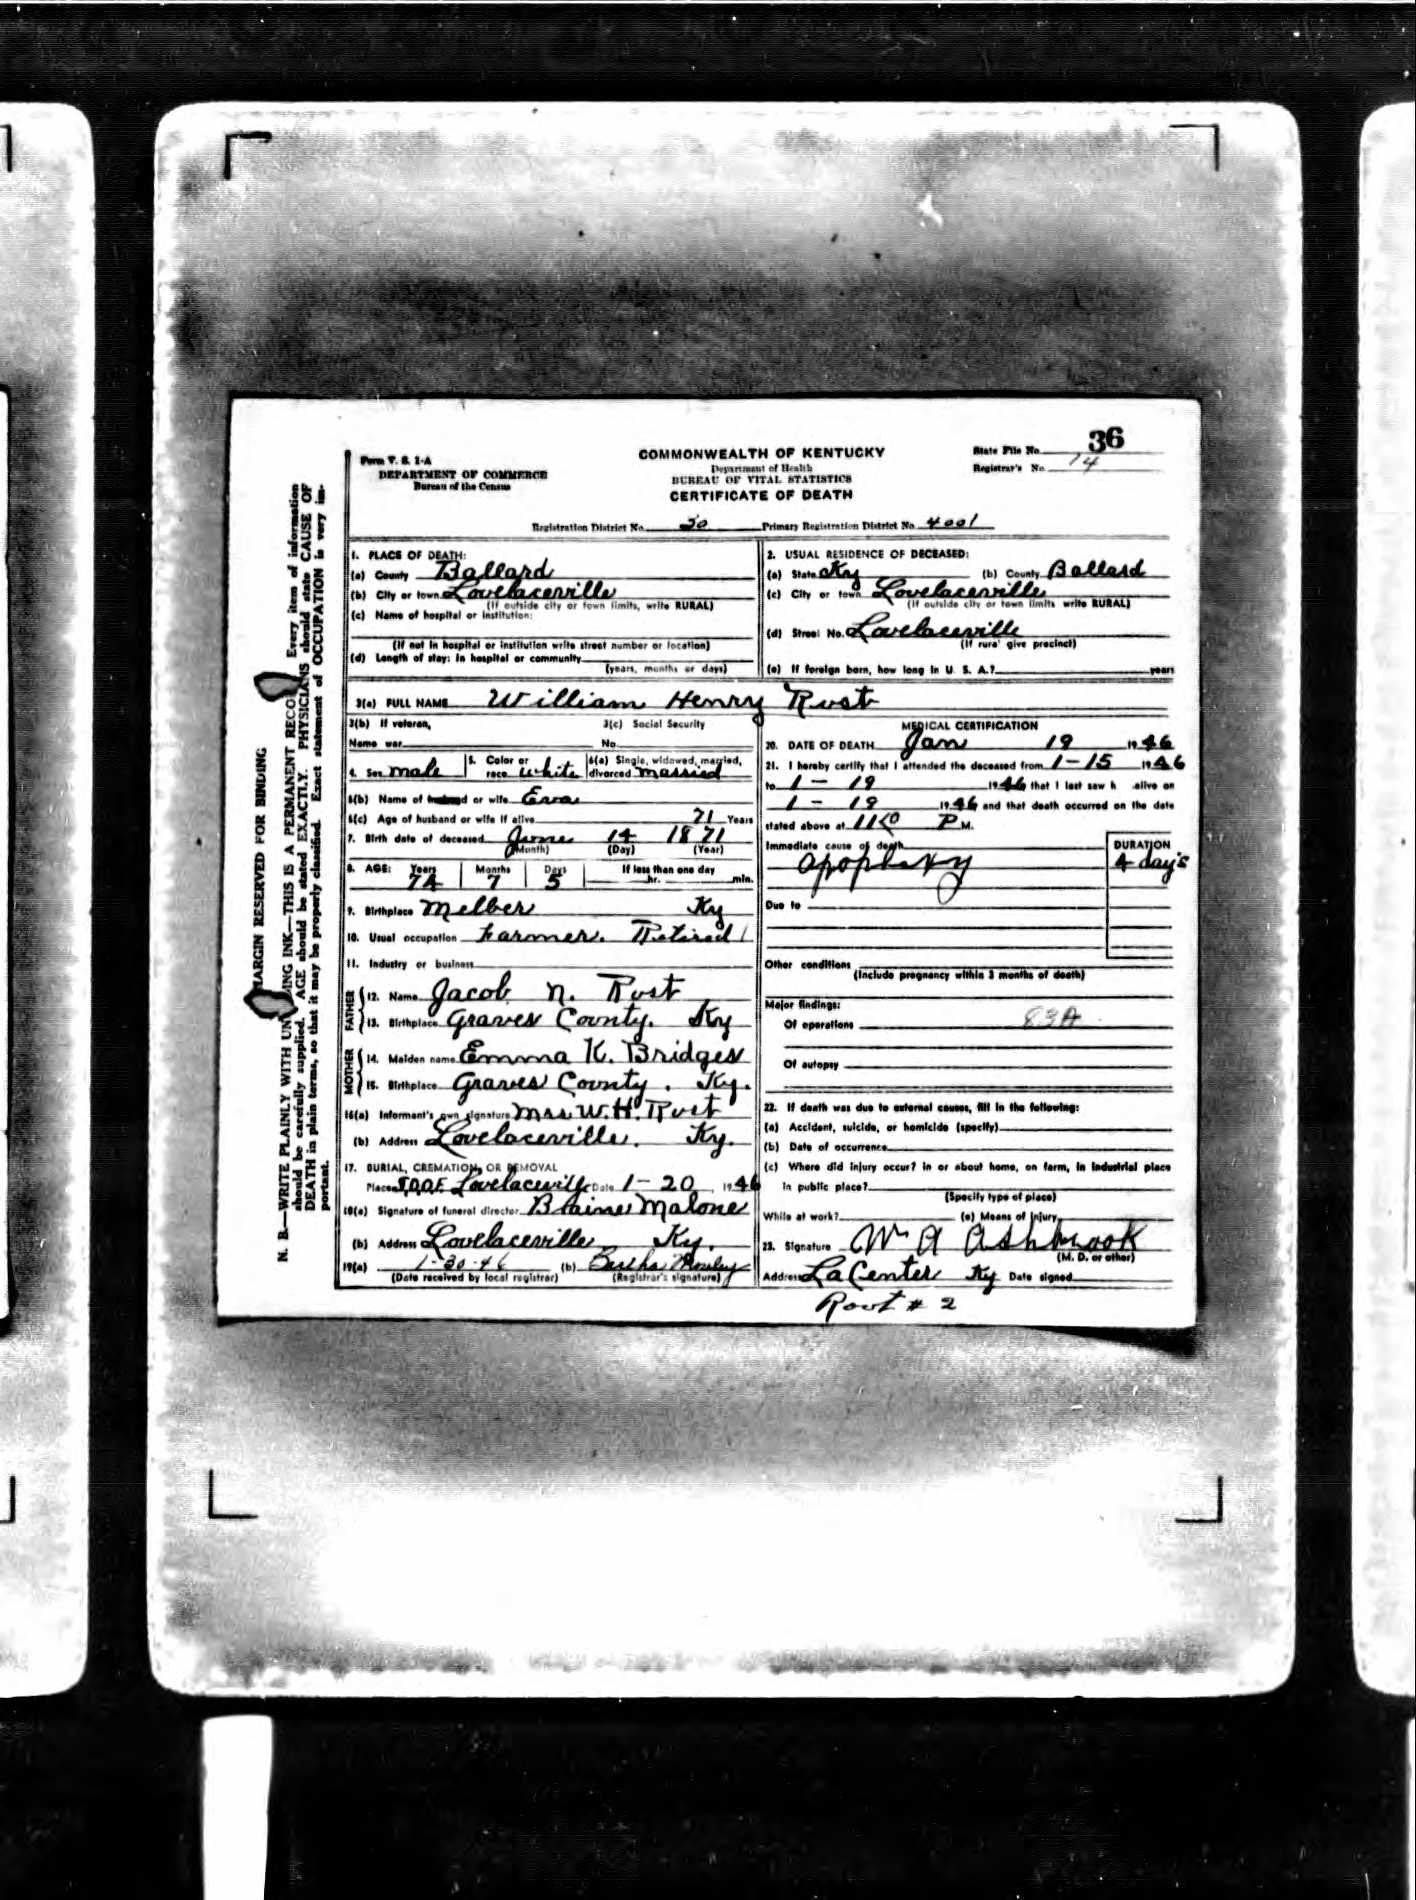 36
State File No.
Registrar's No. 14
Form V. S. 1-A
DEPARTMENT OF COMMERCE
Bureau of the Census
COMMONWEALTH OF KENTUCKY
Department of Health
BUREAU OF VITAL STATISTICS
CERTIFICATE OF DEATH
Registration District No. 30 Primary Registration District No. 4001
MARGIN RESERVED FOR BINDING
N. B.—WRITE PLAINLY WITH UN ING INK—THIS IS A PERMANENT RECO Every item of information
should be carefully supplied. AGE should be stated EXACTLY. PHYSICIANS should state CAUSE OF
DEATH in plain terms, so that it may be properly classified. Exact statement of OCCUPATION is very im-
portant.
1. PLACE OF DEATH:
(a) County Ballard
(b) City or town Lovelaceville
(If outside city or town limits, write RURAL)
(c) Name of hospital or institution:
(If not in hospital or institution write street number or location)
(d) Length of stay: In hospital or community
(years, months or days)
2. USUAL RESIDENCE OF DECEASED:
(a) State Ky (b) County Ballard
(c) City or town Lovelaceville
(If outside city or town limits write RURAL)
(d) Street No. Lovelaceville
(If rural give precinct)
(e) If foreign born, how long in U. S. A.? years
3(a) FULL NAME William Henry Rust
3(b) If veteran, 3(c) Social Security
Name war No.
4. Sex male 5. Color or race white 6(a) Single, widowed, married, divorced married
6(b) Name of husband or wife Eva
6(c) Age of husband or wife if alive 71 Years
7. Birth date of deceased June 14 1871
(Month) (Day) (Year)
8. AGE: Years Months Days If less than one day
74 7 5 hr. min.
9. Birthplace Melber Ky
10. Usual occupation Farmer. Retired
11. Industry or business
FATHER
12. Name Jacob N. Rust
13. Birthplace Graves County. Ky
MOTHER
14. Maiden name Emma K. Bridges
15. Birthplace Graves County. Ky.
16(a) Informant's own signature Mrs W.H. Rust
(b) Address Lovelaceville. Ky.
17. BURIAL, CREMATION, OR REMOVAL
Place I.O.O.F. Lovelaceville Date 1-20, 1946
18(a) Signature of funeral director Blaine Malone
(b) Address Lovelaceville Ky.
19(a) 1-30-46 (b) Bertha Mosley
(Date received by local registrar) (Registrar's signature)
MEDICAL CERTIFICATION
20. DATE OF DEATH Jan 19 1946
21. I hereby certify that I attended the deceased from 1-15 1946
to 1-19 1946 that I last saw h alive on
1-19 1946 and that death occurred on the date
stated above at 1150 P M.
Immediate cause of death DURATION
apoplexy 4 day's
Due to
Other conditions
(Include pregnancy within 3 months of death)
Major findings:
Of operations 83A
Of autopsy
22. If death was due to external causes, fill in the following:
(a) Accident, suicide, or homicide (specify)
(b) Date of occurrence
(c) Where did injury occur? in or about home, on farm, in industrial place
in public place?
(Specify type of place)
While at work? (e) Means of injury
23. Signature Wm A Ashbrook
(M. D. or other)
Address La Center Ky Date signed
Rout # 2